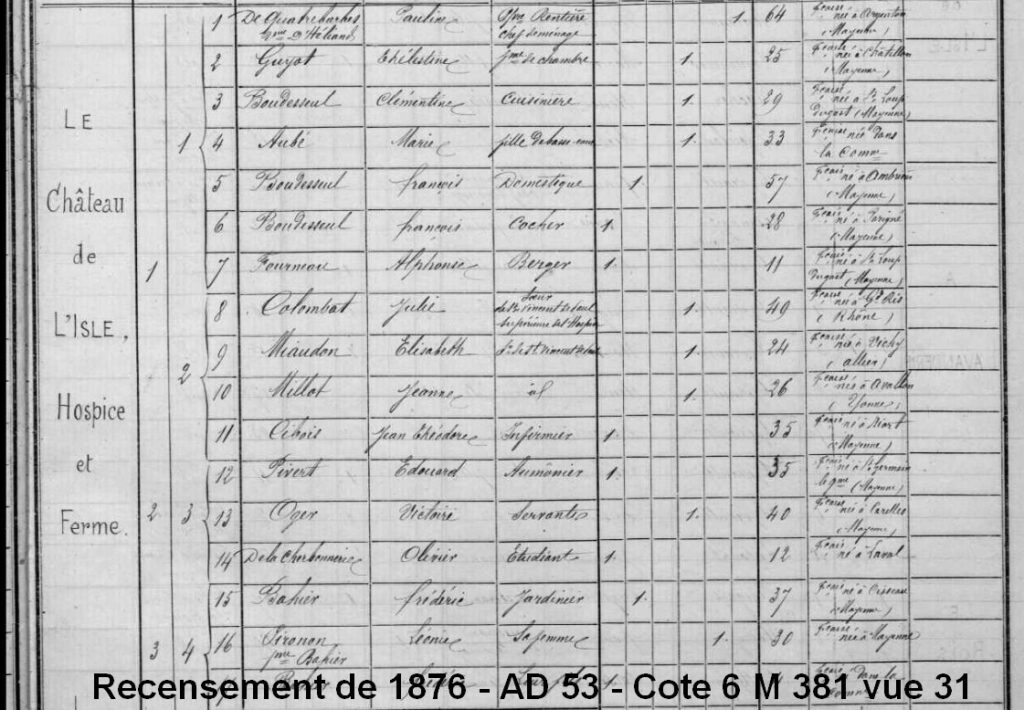 LE
Château
de
L'ISLE,
Hospice
et
Ferme.
1 De Quatrebarbes Pauline Rentière 1. 64 née à Argenton
Vve D'Héliand chef de ménage (Mayenne)
2 Guyot Thélestine fme de chambre 1. 25 née à Châtillon
(Mayenne)
3 Boudesseul Clémentine Cuisinière 1. 29 née à St Loup
dugast (Mayenne)
1 4 Aubé Marie fille de basse-cour 1. 33 née dans
la Comme
5 Boudesseul françois Domestique 1. 57 né à
(Mayenne)
6 Boudesseul françois Cocher 1. 28 né à
(Mayenne)
1 7 Fourneau Alphonse Berger 1. 11 né à St Loup
dugast (Mayenne)
8 Colombat Julie Sœur 1. 49 née à
de St Vincent de Paul (Rhône)
Supérieure de l'Hospice
2 9 Miaudon Elisabeth Sr de St Vincent de Paul 1. 24 née à Vichy
(allier)
10 Millot Jeanne id 1. 26 née à Avallon
(Yonne)
11 Cibois Jean Théodore Infirmier 1. 35 né à Niort
(Mayenne)
12 Pivert Edouard Aumônier 1. 35 né à St Germain
(Mayenne)
2 3 13 Oger Victoire Servante 1. 40 née à Carelles
(Mayenne)
14 De la Cherbonnerie Olivier Etudiant 1. 12 né à Laval
15 Bahier frédéric Jardinier 1. 37 né à Oisseau
(Mayenne)
3 4 16 Léonie Sa femme 1. 30 née à Mayenne
fme Bahier
Recensement de 1876 - AD 53 - Cote 6 M 381 vue 31